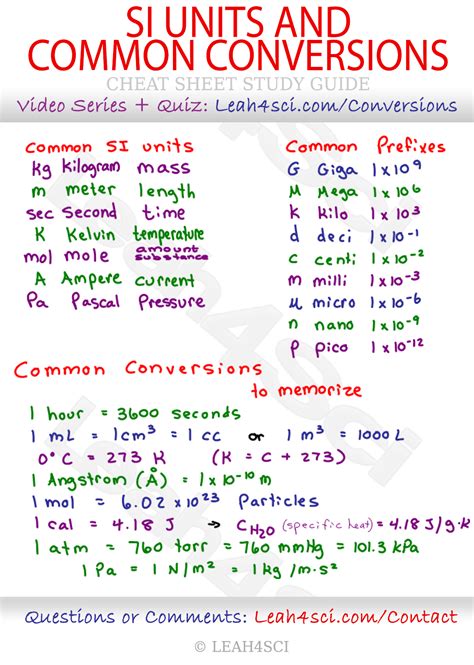 SI UNITS AND
COMMON CONVERSIONS
CHEAT SHEET STUDY GUIDE
Video Series + Quiz: Leah4sci.com/Conversions
Common SI units
kg kilogram mass
m meter length
sec Second time
K Kelvin temperature
mol mole amount substance
A Ampere current
Pa Pascal Pressure
Common Prefixes
G Giga 1x10⁹
M Mega 1x10⁶
k kilo 1x10³
d deci 1x10⁻¹
c centi 1x10⁻²
m milli 1x10⁻³
μ micro 1x10⁻⁶
n nano 1x10⁻⁹
p pico 1x10⁻¹²
Common Conversions
to memorize
1 hour = 3600 seconds
1 mL = 1cm³ = 1 cc or 1 m³ = 1000 L
0°C = 273 K (K = C + 273)
1 Angstrom (Å) = 1x10⁻¹⁰ m
1 mol = 6.02 x10²³ Particles
1 cal = 4.18 J → C H₂O (specific heat) = 4.18 J/g·K
1 atm = 760 torr = 760 mmHg = 101.3 kPa
1 Pa = 1 N/m² = 1 kg/m·s²
Questions or Comments: Leah4sci.com/Contact
© LEAH4SCI
Leah4Sci
Leah4Sci